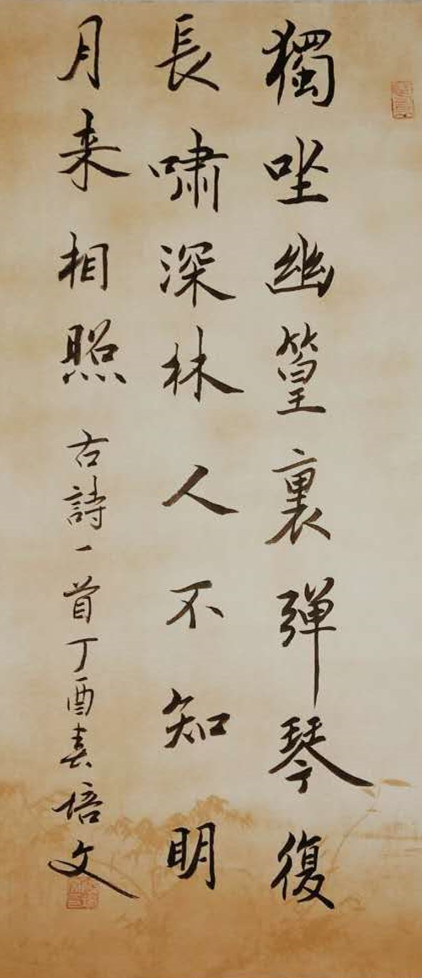 獨坐幽篁裏弾琴復
長嘯深林人不知明
月来相照
古詩一首丁酉春培文